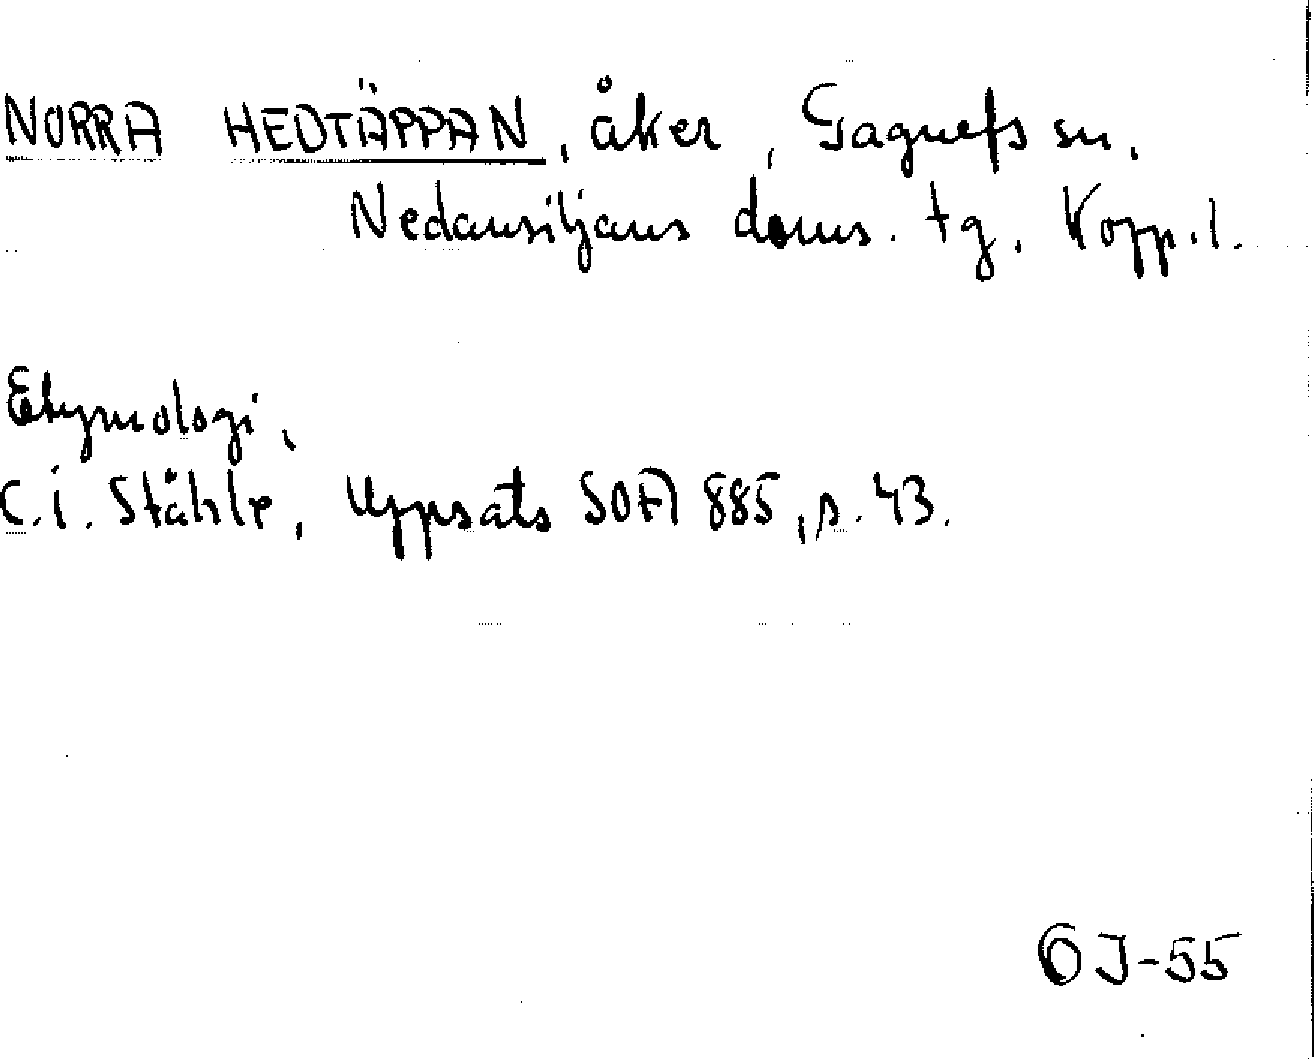 NORRA HEDTÄPPAN, åker, Gagnefs sn.
Nedansiljans doms. tg. Kopp. l.
Etymologi,
C. i. Ståhle, Uppsats SOFA 885, s. 43.
OJ-55